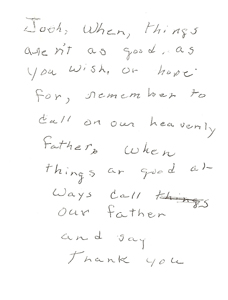 Josh, When, things
aren't as good. as
you wish, or hope
for, remember to
Call on our heavenly
Father, When
things ar good al-
ways Call things
our Father
and say
Thank you